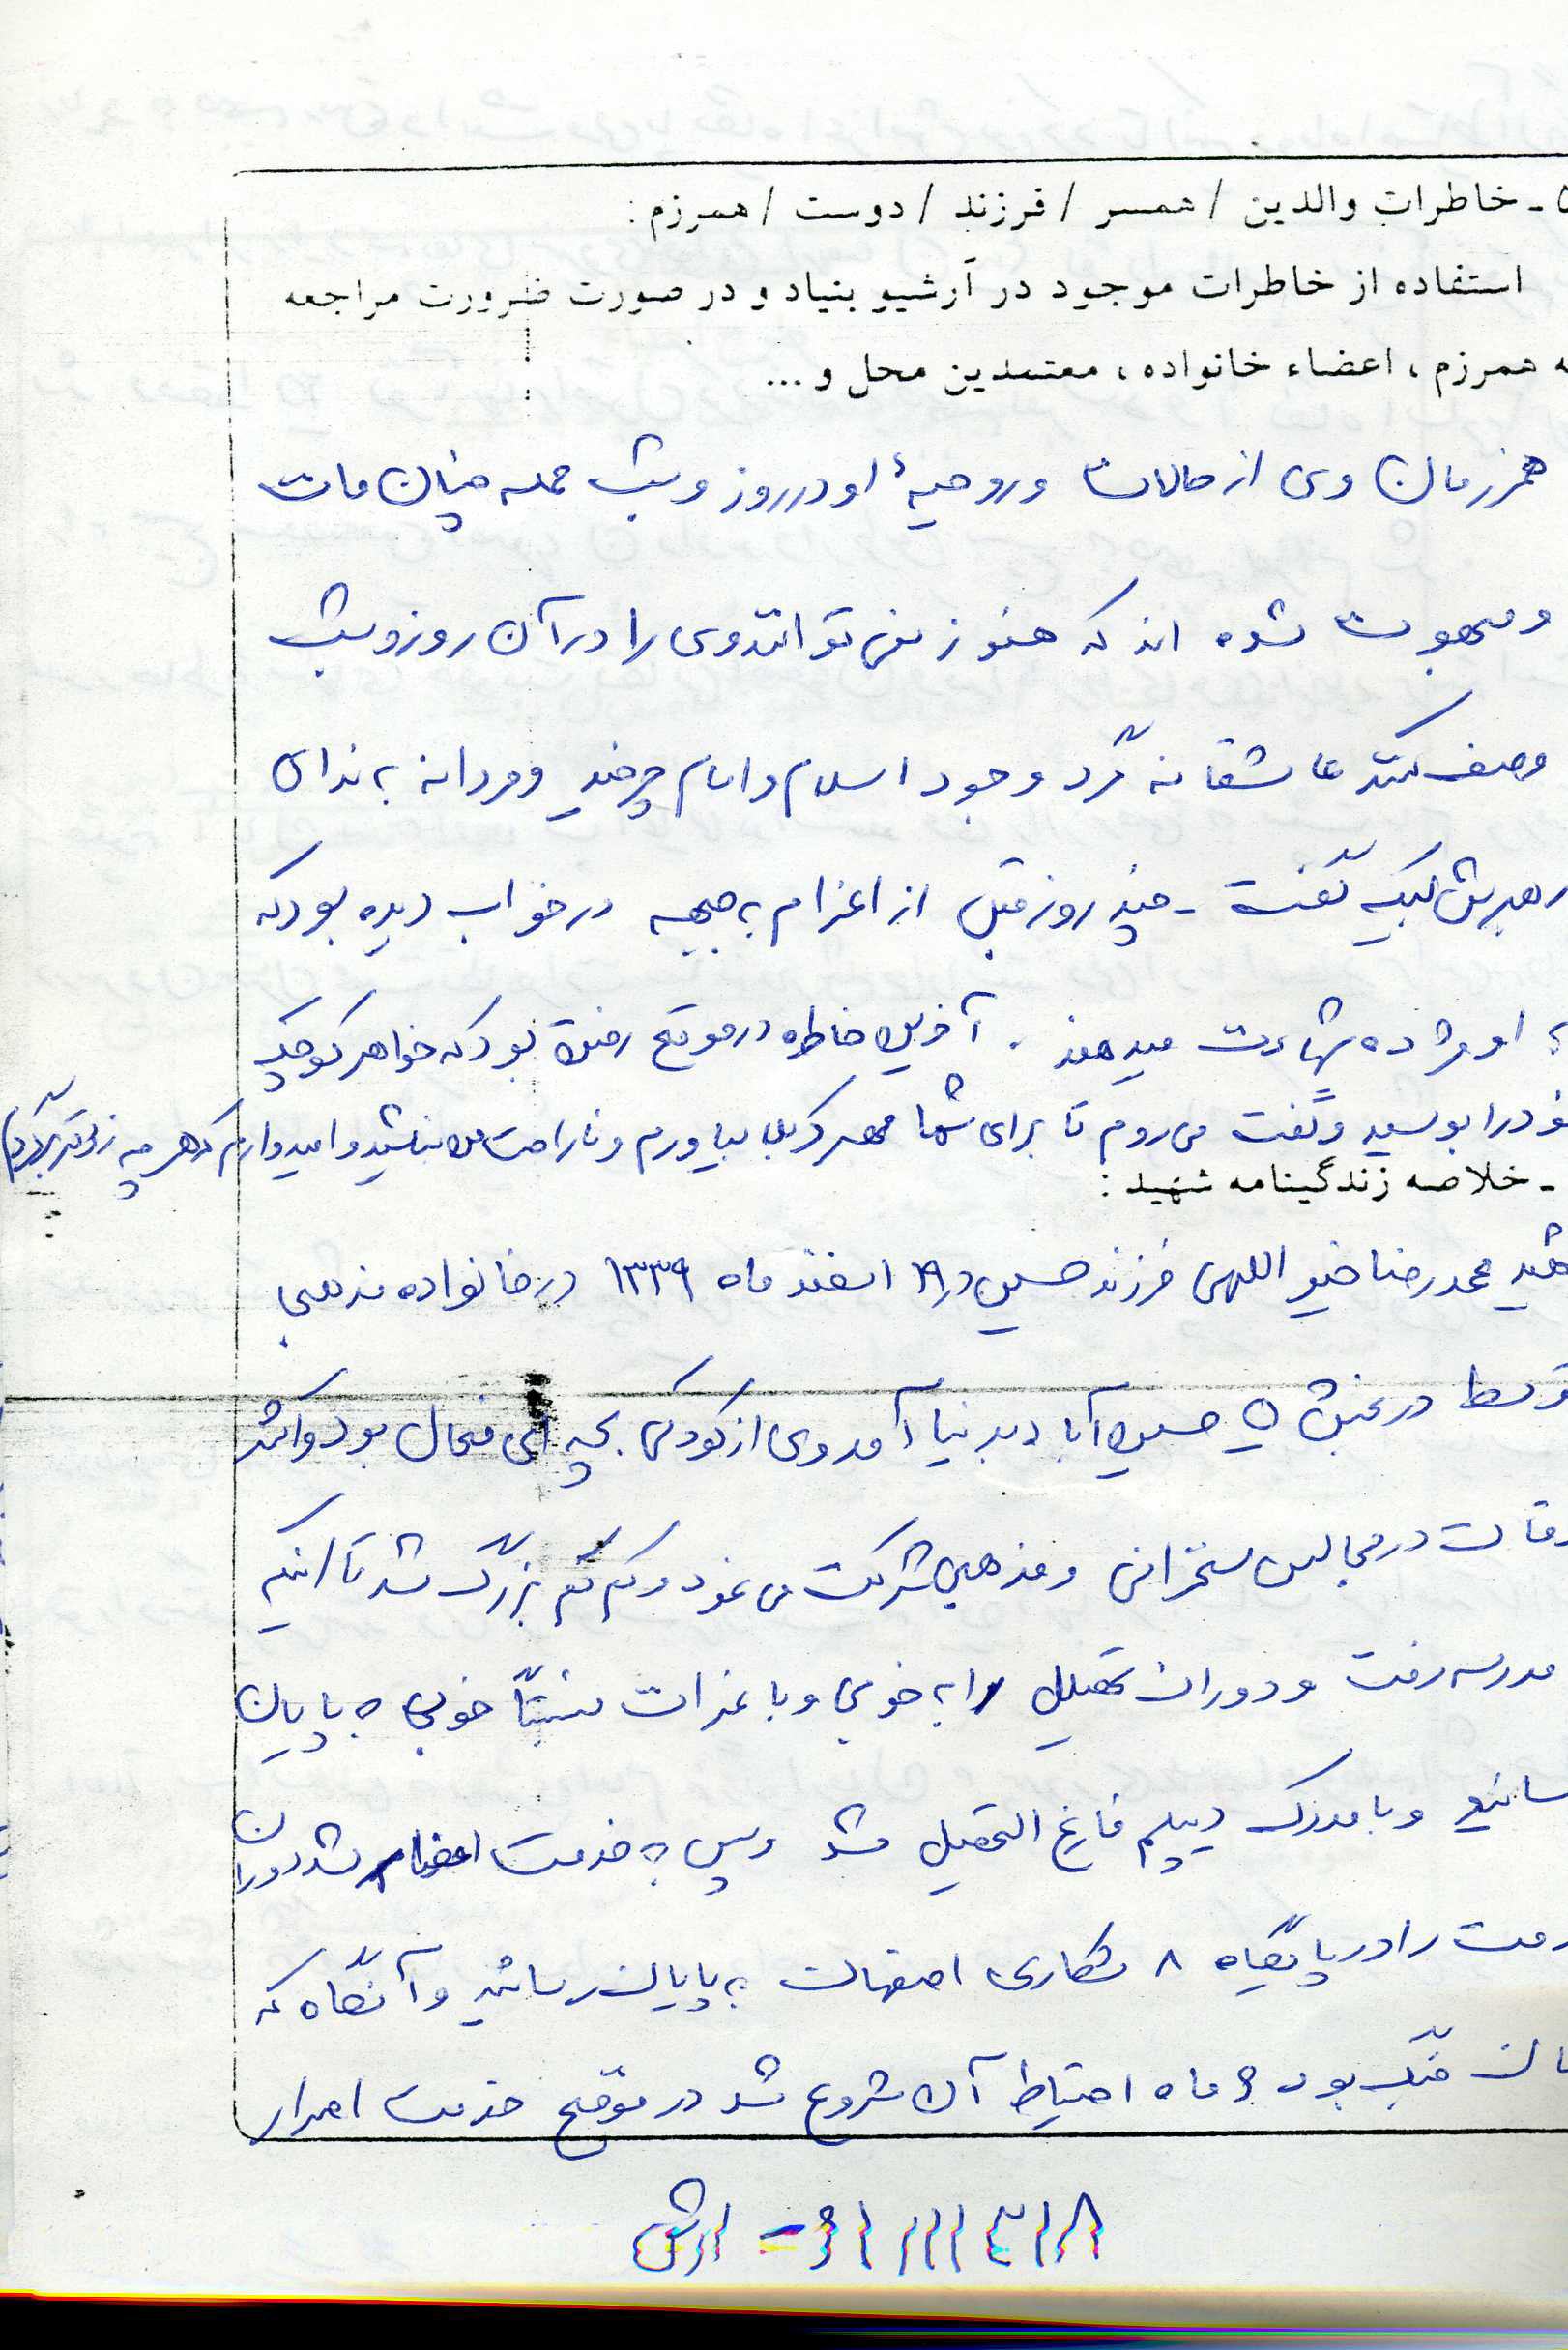 ۵ - خاطرات والدین / همسر / فرزند / دوست / همرزم :
استفاده از خاطرات موجود در آرشیو بنیاد و در صورت ضرورت مراجعه
ه همرزم ، اعضاء خانواده ، معتمدین محل و ...
همرزمان وی از حالات و روحیهٔ او در روز و شب حمله چنان مات
و مبهوت شده اند که هنوز نمی توانند وی را در آن روز و شب
وصف کنند عاشقانه گرد وجود اسلام و امام چرخید و مردانه به ندای
رهبرش لبیک گفت - چند روز قبل از اعزام به جبهه در خواب دیده بود که
به او مژده شهادت میدهند . آخرین خاطره در موقع رفتن بود که خواهر کوچک
خود را بوسید و گفت می روم تا برای شما مهر کربلا بیاورم و ناراحت من نباشید و امیدوارم که هر چه زودتر برگردم
- خلاصه زندگینامه شهید :
شهید محمدرضا خیراللهی فرزند حسین در ۱۹ اسفند ماه ۱۳۳۹ در خانواده مذهبی
توسط در بخش حسین آباد بدنیا آمد وی از کودکی بچه ای فعال بود و اکثر
وقات در مجالس سخنرانی و مذهبی شرکت می نمود و کم کم بزرگ شد تا اینکه
مدرسه رفت و دوران تحصیل را به خوبی و با نمرات نسبتاً خوبی به پایان
سانید و با مدرک دیپلم فارغ التحصیل شد و سپس به خدمت اعزام شد دوران
دمت را در پایگاه ۸ شکاری اصفهان به پایان رسانید و آنگاه که
مان جنگ بود ۶ ماه احتیاط آن شروع شد در موقع خدمت اصرار
۸ / ۳ / ۱۱ / ۶ - ارش